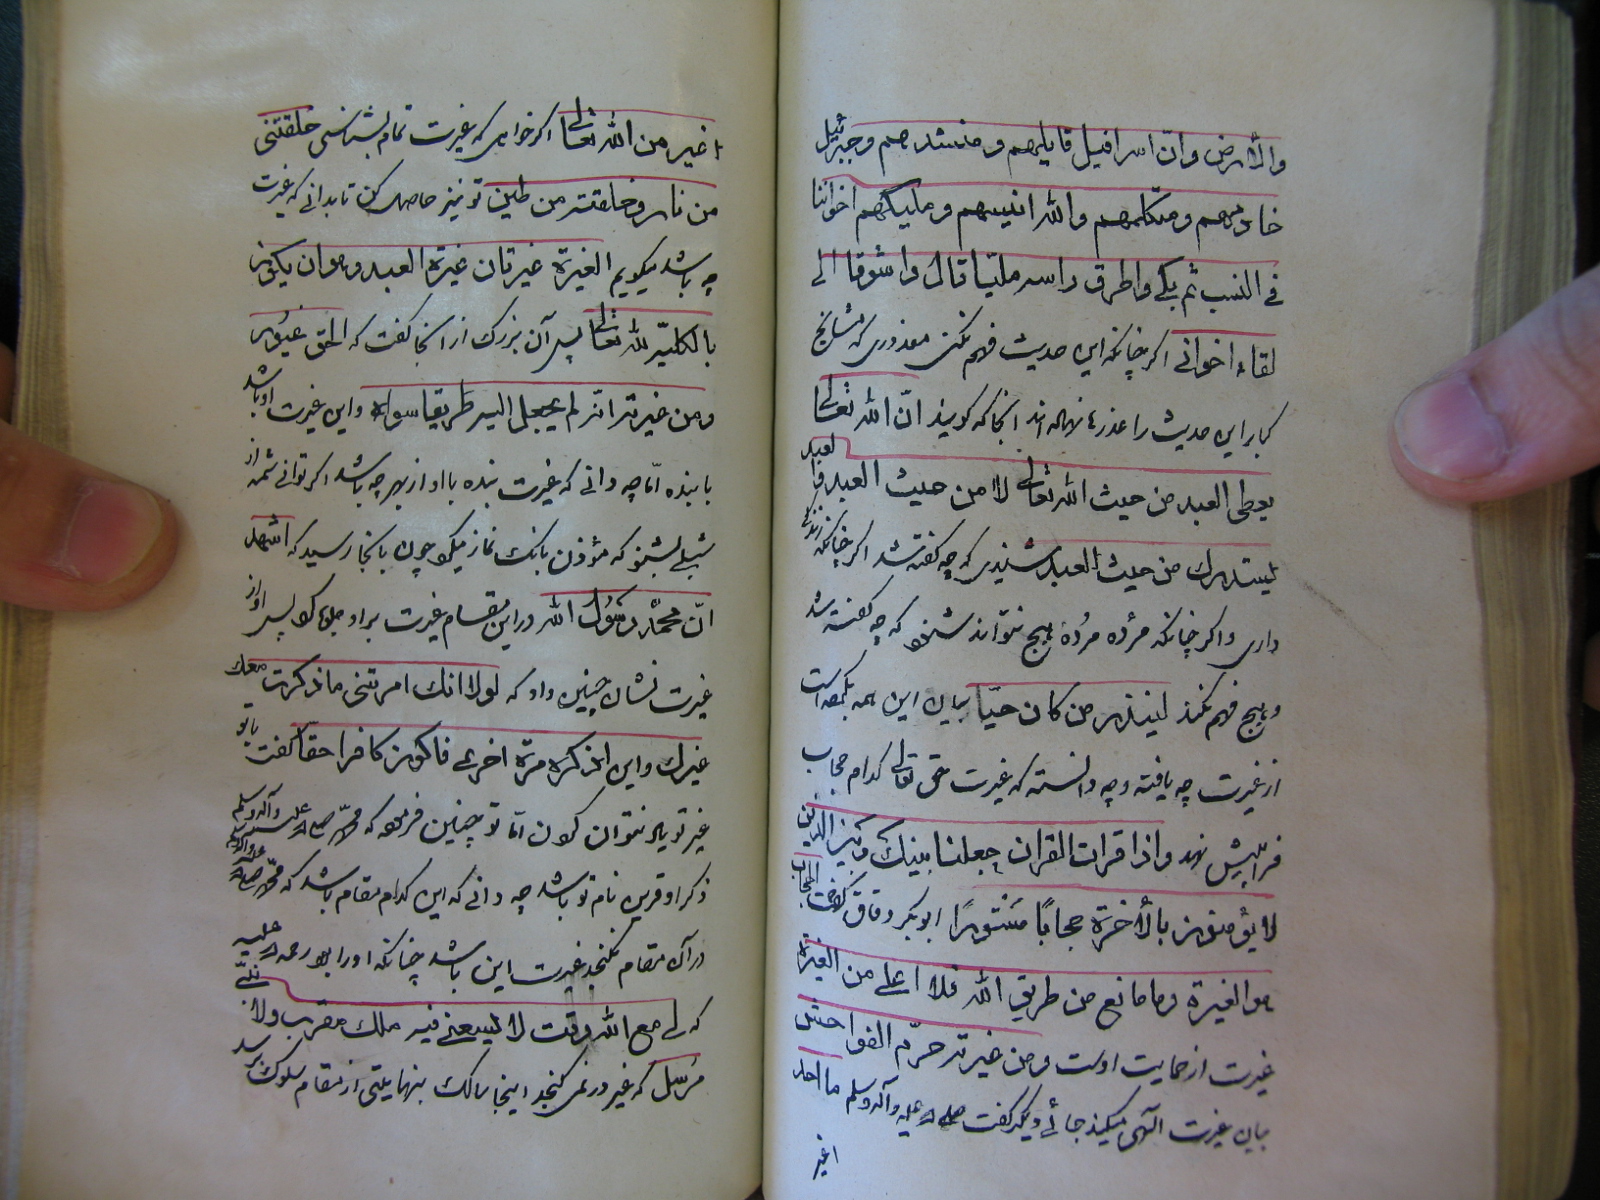 والارض وان اسرافیل قایلهم ومنشدهم وجبرئیل
خادمهم ومتکلمهم والله انیسهم وملیکهم اخواننا
فی النسب ثم بکی واطرق راسه ملیا قال واشوقا الی
لقاء اخوانی اکر چنانکه این حدیث فهم نکنی معذوری که مشایخ
کبار این حدیث را عذرها نهاده اند انجا که کویند انّ الله تعالی
یعطی العبد من حیث الله تعالی لا من حیث العبد فالعبد
یستدرک من حیث العبد شنیدی که چه کفته شد اکر چنانکه زندکی
داری واکر چنانکه مرده مرُدهٔ هیچ نتواند شنود که چه کفته شد
وهیچ فهم نکند لینذر من کان حیّا بیان این همه بکیست
از غیرت چه یافته وچه دانسته که غیرت حق تعالی کدام حجاب
فرا پیش نهد واذا قرات القران جعلنا بینک وبین الذین
لا یؤمنون بالاخرة حجابًا مستورًا ابوبکر دقاق کفت الحجاب
هو الغیرة وما مانع من طریق الله فلا اعلی من الغیرة
غیرت از حمایت اوست ومن غیرته حرّم الفواحش
بیان غیرت الهی میکند جائی دیکر کفت صلی الله علیه وآله وسلم ما احد
اغیر
اغیر من الله تعالی اکر خواهی که غیرت تمام بشناسی خلقتنی
من نار وخلقته من طین تو نیز حاصل کن تا بدانی که غیرت
چه باشد میکویم الغیرة غیرتان غیرة العبد وهو ان یکون
بالکلیّه لله تعالی پس آن بزرک از انجا کفت که الحق غیور
ومن غیرته انه لم یجعل الیه طریقا سواه واین غیرت او باشد
با بنده امّا چه دانی که غیرت بنده با او از بهر چه باشد اکر توانی شمهٔ از
شبلی بشنو که مؤذن بانک نماز میکو چون بانجا رسید که اشهد
انّ محمّدا رسُول الله در این مقام غیرت بر او جلوه کرد پس او از
غیرت نشان چنین داد که لولا انک امرتنی ما ذکرت معک
غیرک واین اذکره مرة اخری فاکون کافرا حقا کفت با تو
غیر تو یاد نتوان کردن امّا تو چنین فرمودهٔ که محمّد صلی الله علیه وآله وسلم
ذکر او قرین نام تو باشد چه دانی که این کدام مقام باشد که محمّد صلی الله علیه وآله وسلم
در آن مقام نکنجد غیرت این باشد چنانکه او را بود رحمة الله علیه
که لی مع الله وقت لا یسعنی فیه ملک مقرب ولا نبیّ
مرُسل که غیر در نمی کنجد اینجا سالک بنهایتی از مقام سلوک رسد